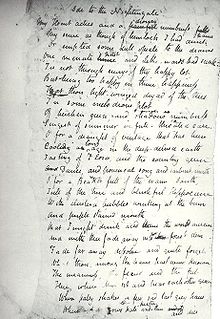 Ode to the Nightingale
My Heart aches and a drowsy numbness falls
My sense as though of hemlock I had drunk
Or emptied some dull opiate to the drains
One minute and Lethe wards had sunk
Tis not through envy of thy happy lot
But being too happy in thine happiness
That thou light winged dryad of the trees
In some melodious plot
Of beechen green and shadows numberless
Singest of summer in full-throated ease
O for a draught of vintage that has been
Cooling an age in the deep-delved earth
Tasting of Flora and the country green
And Dance, and song and sunburnt mirth
O for a beaker full of the warm South
Full of the true and blushful Hippocrene
With cluster'd bubbles winking at the brim
And purple stained mouth
That I might drink and leave the world unseen
And with thee fade away into forest dim
Fade far away dissolve and quite forget
What thou among the leaves hast never known
The weariness the fever and the fret
Here, where Men sit and hear each other groan
Where palsy shakes a few sad last grey hairs
Where youth grows pale and thin and